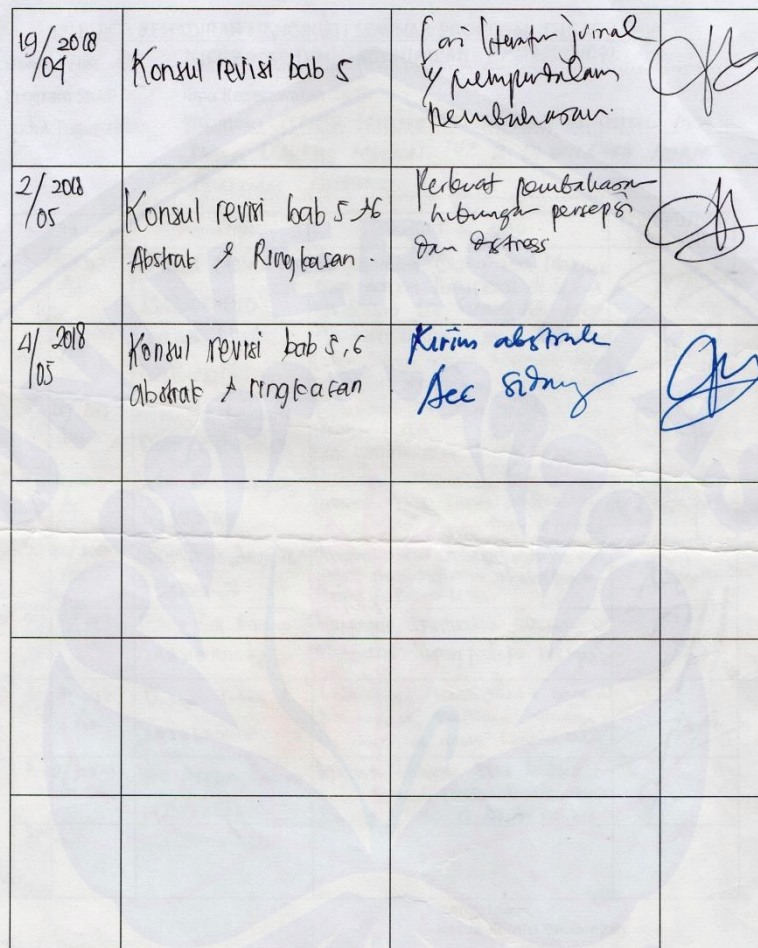 19/04 2018
Konsul revisi bab 5
Cari literatur jurnal
y/ memperdalam
pembahasan.
2/05 2018
Konsul revisi bab 5 &6
Abstrak & Ringkasan.
Perkuat pembahasan
hubungan persepsi
dan distress
4/05 2018
Konsul revisi bab 5,6
abstrak & ringkasan
Kirim abstrak
Acc Sidang